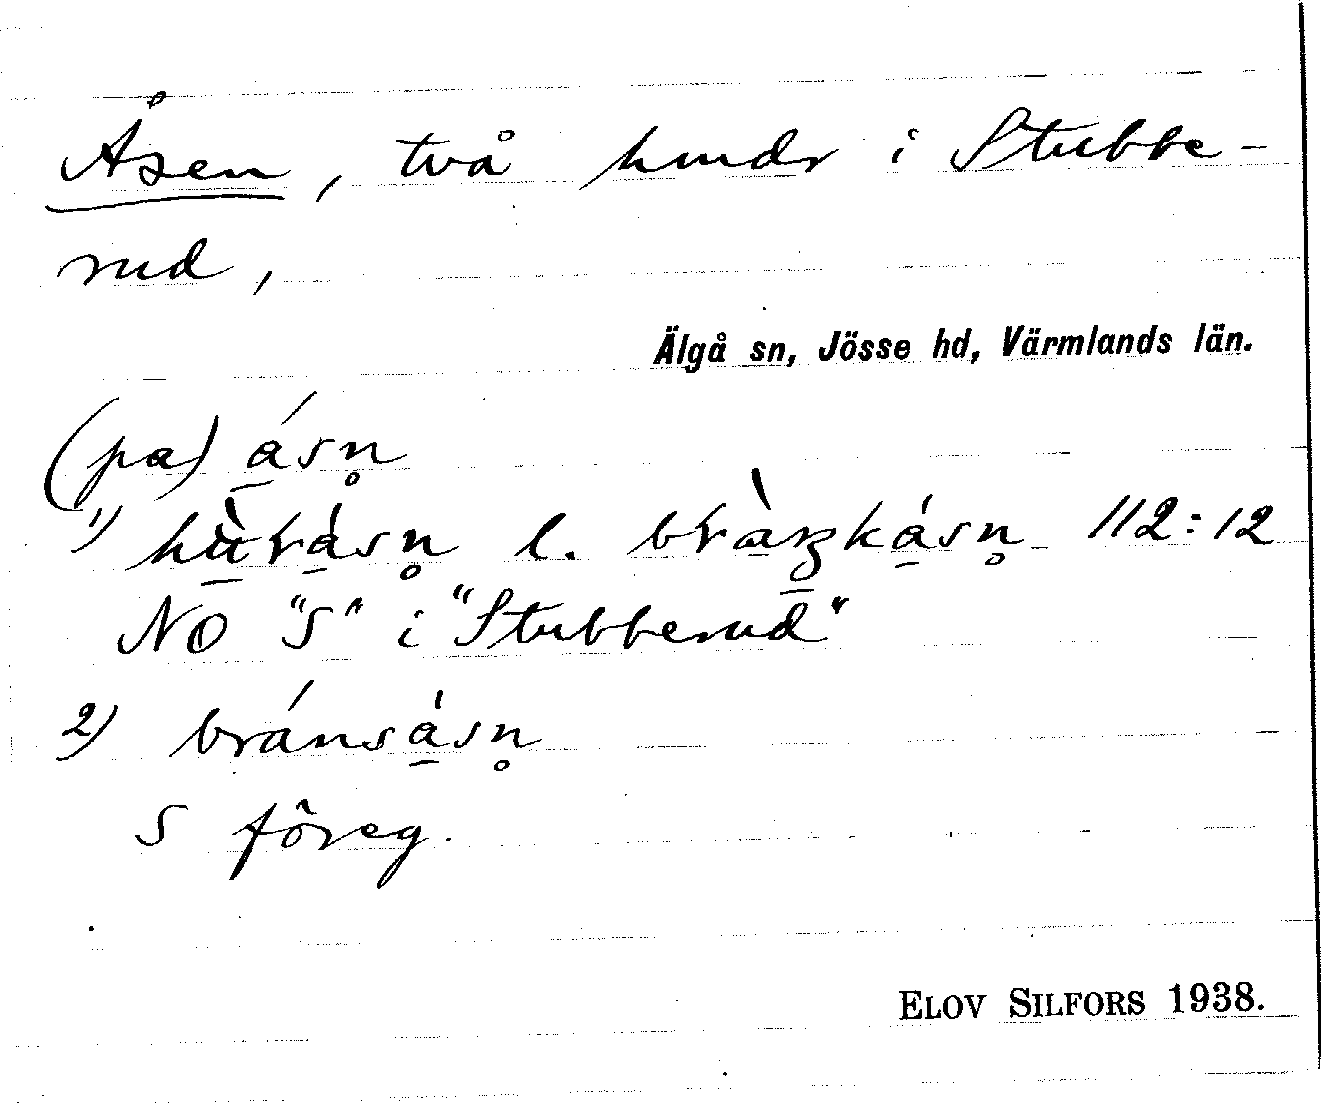 Åsen, två hmdr i Stubbe-
rud,
Älgå sn, Jösse hd, Värmlands län.
(pa) á̱sn̥
1) hù̱rá̱sn̥ l. brà̱ꜿká̱sn̥ 112:12
NO "S" i "Stubberud"
2) bránsá̱sn̥
S föreg.
ELOV SILFORS 1938.